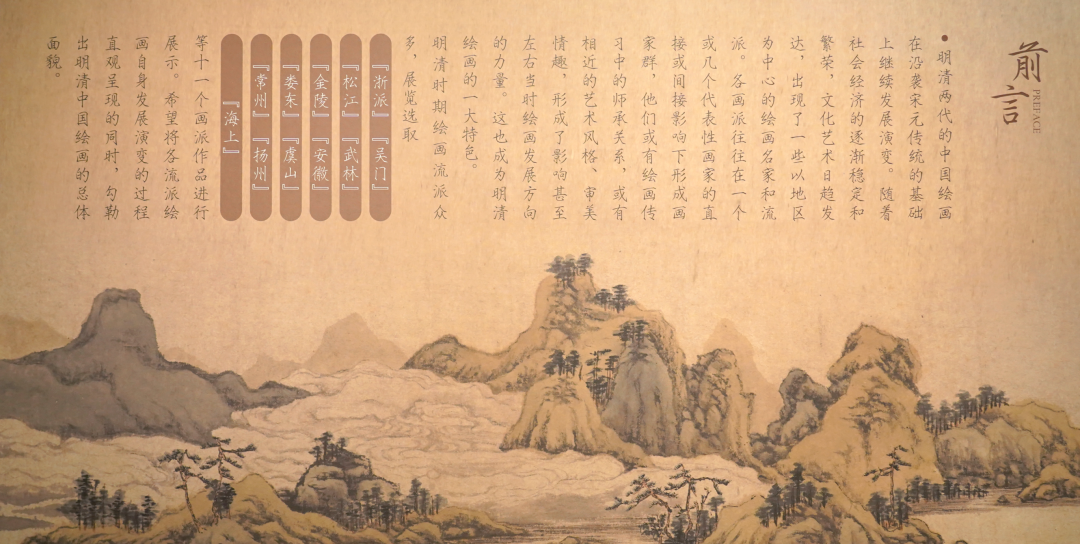 前言
PREFACE
●明清两代的中国绘画
在沿袭宋元传统的基础
上继续发展演变。随着
社会经济的逐渐稳定和
繁荣，文化艺术日趋发
达，出现了一些以地区
为中心的绘画名家和流
派。各画派往往在一个
或几个代表性画家的直
接或间接影响下形成画
家群，他们或有绘画传
习中的师承关系，或有
相近的艺术风格、审美
情趣，形成了影响甚至
左右当时绘画发展方向
的力量。这也成为明清
绘画的一大特色。
明清时期绘画流派众
多，展览选取
『浙派』『吴门』
『松江』『武林』
『金陵』『安徽』
『娄东』『虞山』
『常州』『扬州』
『海上』
等十一个画派作品进行
展示。希望将各流派绘
画自身发展演变的过程
直观呈现的同时，勾勒
出明清中国绘画的总体
面貌。